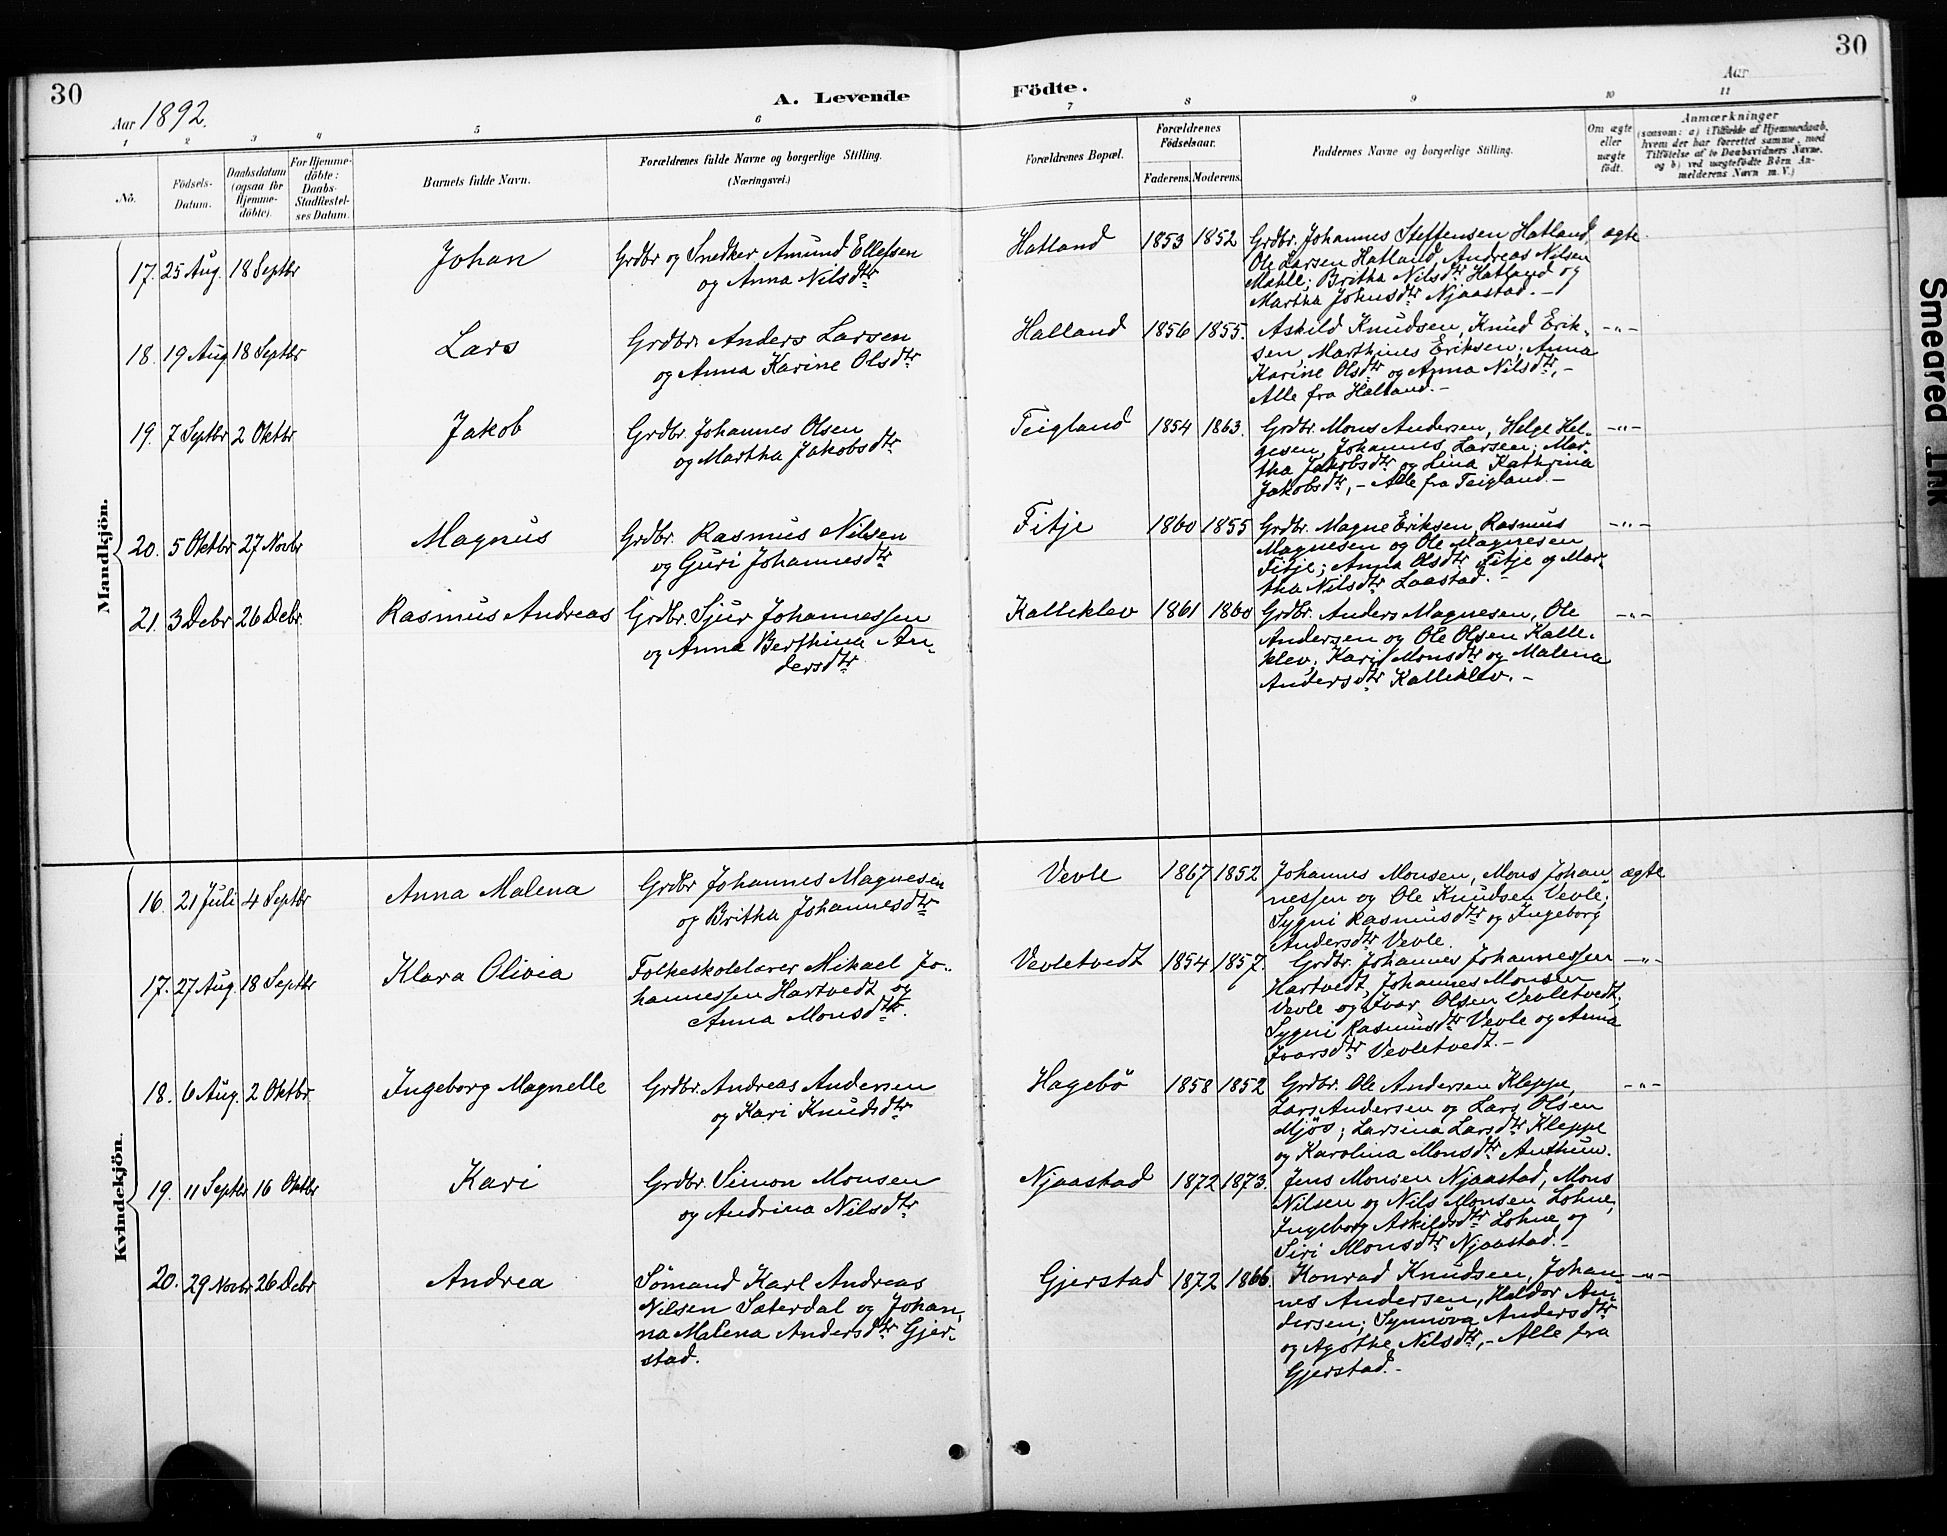 30
30
Aar 1892.
A. Levende
Födte.
Aar
1 2 3 4 5 6 7 8 9 10 11
Nö.
Födsels-
Datum.
Daabsdatum
(ogsaa for
Hjemme-
döbte).
For Hjemme-
döbte:
Daabs-
Stadfæstel-
ses Datum.
Barnets fulde Navn.
Forældrenes fulde Navne og borgerlige Stilling.
(Næringsvei.)
Forældrenes Bopæl.
Forældrenes
Födselsaar.
Faderens. Moderens.
Faddernes Navne og borgerlige Stilling.
Om ægte
eller
uægte
födt.
Anmærkninger
(saasom: a) i Tilfælde af Hjemmedaab,
hvem der har forrettet samme, med
Tilföielse af to Daabsvidners Navne,
og b) ved uægtefödte Börn An-
melderens Navn m. V.)
Mandkjön.
17. 25 Aug. 18 Septbr
Johan
Grdbr og Snedker Amund Ellefsen
og Anna Nilsdtr
Hatland
1853 1852
Grdbr. Johannes Steffensen Hatland,
Ole Larsen Hatland, Andreas Nilsen
Mæhle; Britha Nilsdtr Hatland og
Martha Johnsdtr Njaastad. –
ægte
18. 19 Aug 18 Septbr
Lars
Grdbr. Anders Larsen
og Anna Karine Olsdtr
Hatland
1856 1855.
Askild Knudsen, Knud Erik-
sen, Marthines Eriksen; Anna
Karine Olsdtr og Anna Nilsdtr, –
Alle fra Hatland. –
–"–
19. 7 Septbr 2 Oktbr
Jakob
Grdbr. Johannes Olsen
og Martha Jakobsdtr
Teigland
1854 1863.
Grdbr. Mons Andersen, Helge Hel-
gesen, Johannes Larsen; Mar-
tha Jakobsdtr og Lina Kathrina
Jakobsdtr, – Alle fra Teigland. –
–"–
20. 5 Oktbr 27 Novbr
Magnus
Grdbr. Rasmus Nilsen
og Guri Johannesdtr
Fitje
1860 1855
Grdbr. Magne Eriksen, Rasmus
Magnesen og Ole Magnesen
Fitje; Anna Olsdtr Fitje og Mar-
tha Nilsdtr Laastad. –
–"–
21. 3 Debr 26 Debr.
Rasmus Andreas
Grdbr. Sjur Johannessen
og Anna Berthina An-
dersdtr
Kalleklev
1861 1860
Grdbr. Anders Magnesen, Ole
Andersen og Ole Olsen Kalle-
klev; Kari Monsdtr og Malena
Andersdtr Kalleklev. –
–"–
Kvindekjön.
16. 21 Juli 4 Septbr
Anna Malena
Grdbr Johannes Magnesen
og Britha Johannesdtr
Vevle
1867 1852
Johannes Monsen, Mons Johan
nessen og Ole Knudsen Vevle;
Sygni Rasmusdtr og Ingeborg
Andersdtr Vevle.
ægte
17. 27 Aug. 18 Septbr
Klara Olivia
Folkeskolelærer Mikael Jo-
hannessen Hartvedt og
Anna Monsdtr.
Vevletvedt
1854 1857.
Grdbr. Johannes Johannessen
Hartvedt, Johannes Monsen
Vevle og Ivar Olsen Vevletvedt;
Sygni Rasmusdtr Vevle og Anna
Ivarsdtr Vevletvedt. –
–"–
18. 6 Aug. 2 Oktbr
Ingeborg Magnelle
Grdbr. Andreas Andersen
og Kari Knudsdtr
Hagebö
1858 1852
Grdbr. Ole Andersen Kleppe,
Lars Andersen og Lars Olsen
Mjös; Larsina Larsdtr Kleppe
og Karolina Monsdtr Authun.
–"–
19. 11 Septbr 16 Oktbr
Kari
Grdbr. Simon Monsen
og Andrina Nilsdtr
Njaastad
1872 1873.
Jens Monsen Njaastad, Mons
Nilsen og Nils Monsen Lohne;
Ingeborg Askildsdtr Lohne og
Siri Monsdtr Njaastad. –
20. 29 Novbr 26 Debr
Andrea
Sömand Karl Andreas
Nilsen Sæterdal og Johan,
na Malena Andersdtr Gjer-
stad.
Gjerstad
1872 1866.
Konrad Knudsen, Johan-
nes Andersen, Haldor An-
dersen; Synnöva Andersdtr
og Agothe Nilsdtr, – Alle fra
Gjerstad. –
–"–
Smeared Ink